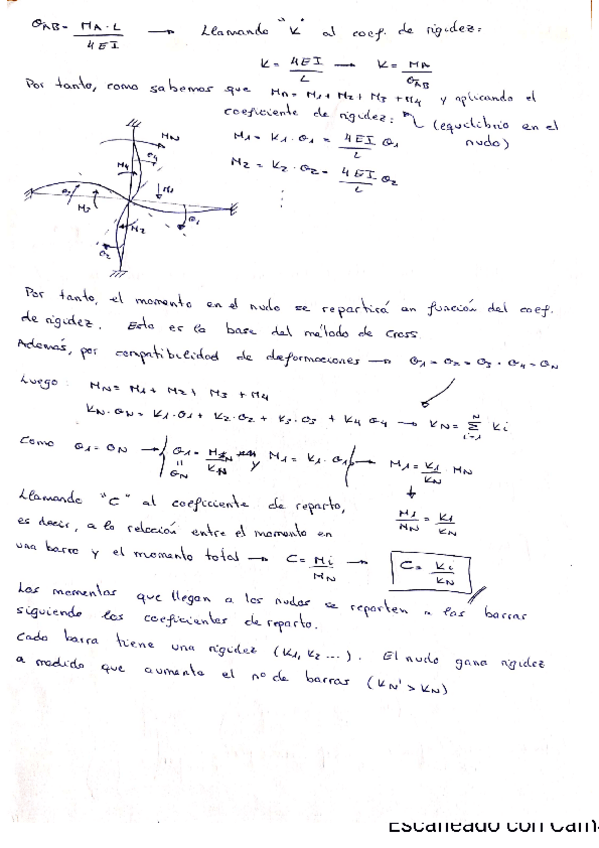 θAB = MA · L / 4EI → Llamando "K" al coef. de rigidez:
K = 4EI / L → K = MA / θAB
Por tanto, como sabemos que Mn = M1 + M2 + M3 + M4 y aplicando el
coeficiente de rigidez: (equilibrio en el
nudo)
M1 = K1 · θ1 = 4EI / L θ1
M2 = K2 · θ2 = 4EI / L · θ2
⋮
MN
θ4
M4
M1
θ3
M3
θ1
M2
θ2
Por tanto, el momento en el nudo se repartirá en función del coef.
de rigidez. Esto es la base del método de Cross.
Además, por compatibilidad de deformaciones → θ1 = θ2 = θ3 = θ4 = θN
Luego: MN = M1 + M2 + M3 + M4
KN · θN = K1 · θ1 + K2 · θ2 + K3 · θ3 + K4 θ4 → KN = Σ(i=1, N) Ki
Como θ1 = θN → θ1 = MN / KN y M1 = K1 · θ1 → M1 = K1 / KN · MN
θN
M1 / MN = K1 / KN
Llamando "C" al coeficiente de reparto,
es decir, a la relación entre el momento en
una barra y el momento total → C = Mi / MN → C = Ki / KN
Los momentos que llegan a los nudos se reparten a las barras
siguiendo los coeficientes de reparto.
Cada barra tiene una rigidez (K1, K2 ...). El nudo gana rigidez
a medida que aumenta el nº de barras (KN' > KN)
Escaneado con Cam